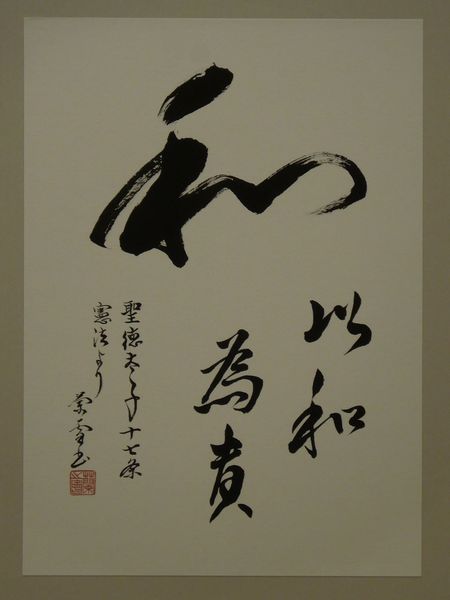 和
以和
為貴
聖徳太子十七条
憲法より